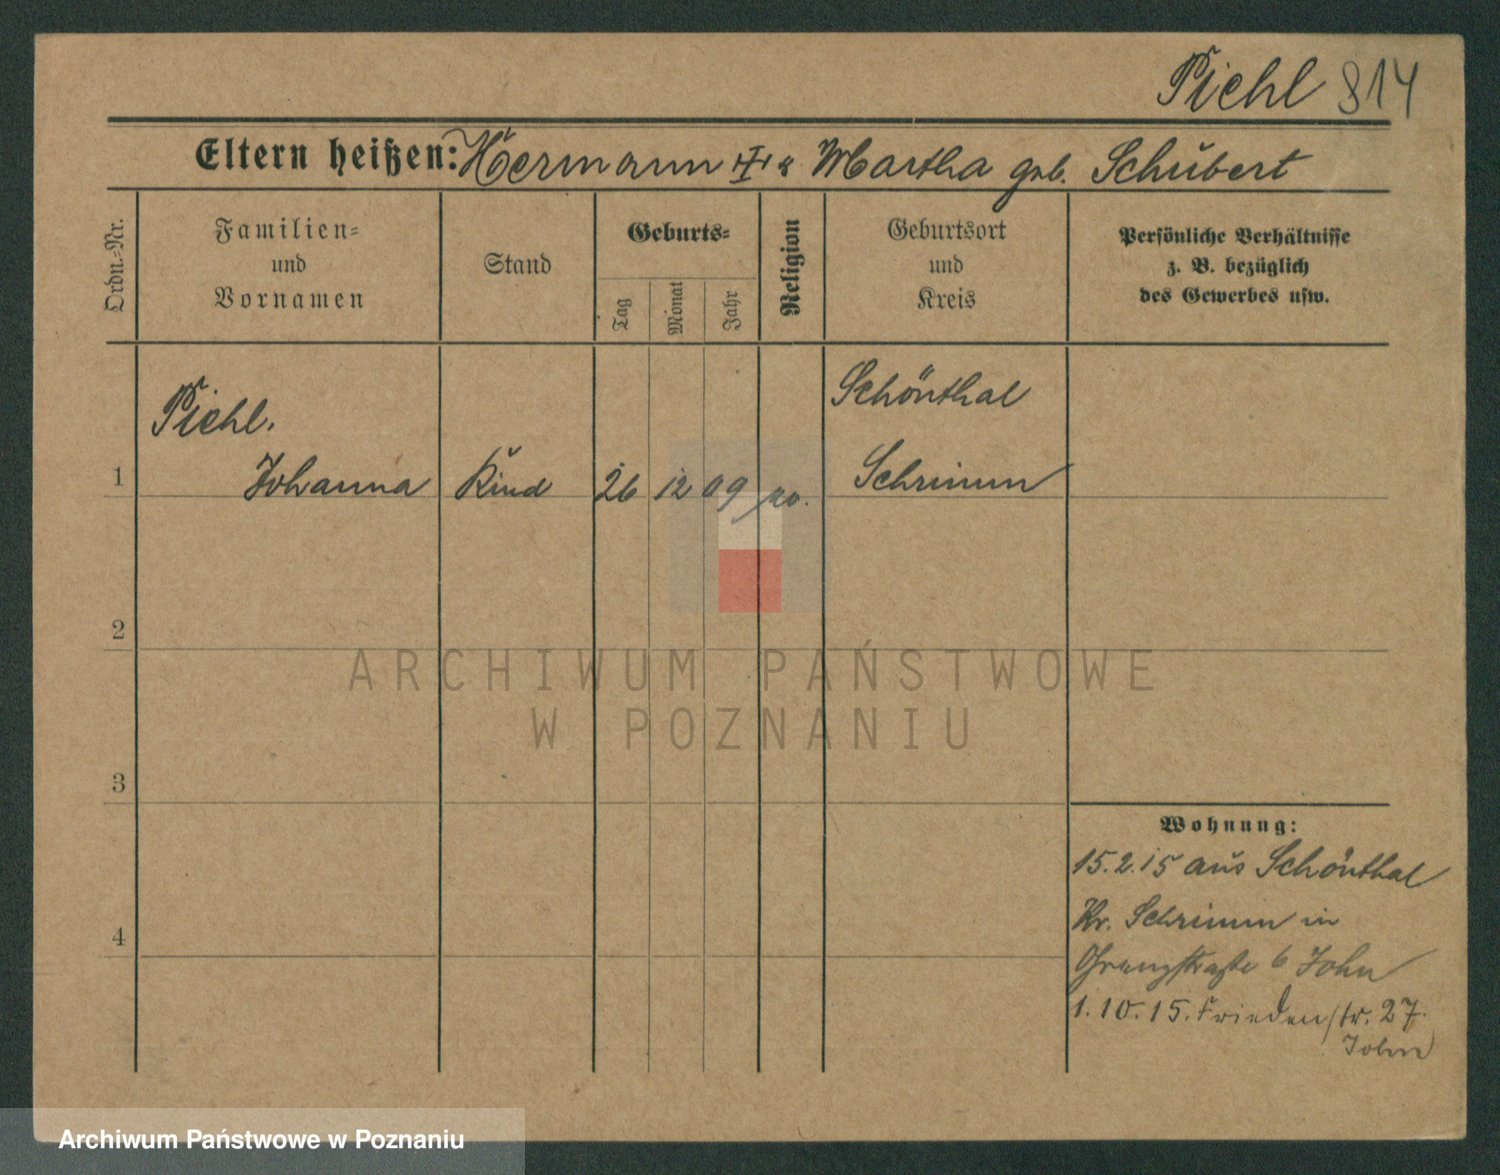 Piehl 814
Eltern heißen: Hermann u Martha geb. Schubert
Ordn.=Nr.
Familien=
und
Vornamen
Stand
Geburts=
Tag
Monat
Jahr
Religion
Geburtsort
und
Kreis
Persönliche Verhältnisse
z. B. bezüglich
des Gewerbes usw.
Piehl.
Schönthal
1 Johanna Kind 26 12 09 Schrimm
2
3
4
Wohnung:
15.2.15 aus Schönthal
Kr. Schrimm in
6 John
1.10.15. Friedenstr. 27.
John
ARCHIWUM PAŃSTWOWE
W POZNANIU
Archiwum Państwowe w Poznaniu